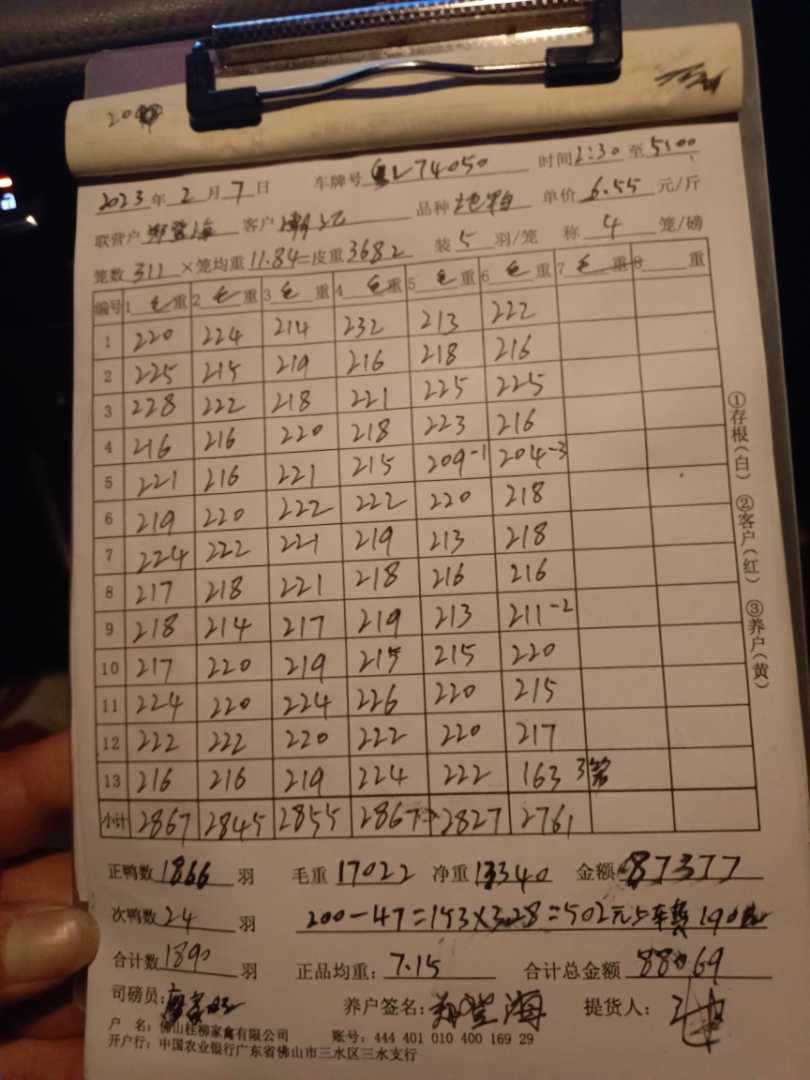 2023年2月7日 车牌号 74050 时间2:30至5:00
联营户 郑登海 客户 品种 单价6.55元/斤
笼数311×笼均重11.84=皮重3682 装5羽/笼 称4笼/磅
编号 1毛重 2毛重 3毛重 4毛重 5毛重 6毛重 7毛重 8重
1 220 224 214 232 213 222
2 225 215 219 216 218 216
3 228 222 218 221 225 225
4 216 216 220 218 223 216
5 221 216 221 215 209-1 204-3
6 219 220 222 222 220 218
7 224 222 221 219 213 218
8 217 218 221 218 216 216
9 218 214 217 219 213 211-2
10 217 220 219 215 215 220
11 224 220 224 226 220 215
12 222 222 220 222 220 217
13 216 216 219 224 222 163 3笼
小计 2867 2845 2855 2867 2827 2761
①存根(白) ②客户(红) ③养户(黄)
正鸭数1866羽 毛重17022 净重13340 金额87377
次鸭数24羽 200-47=153×3.28=502元 车费190
合计数1890羽 正品均重:7.15 合计总金额88069
司磅员: 养户签名:郑登海 提货人:
户 名:佛山桂柳家禽有限公司 账号:444 401 010 400 169 29
开户行:中国农业银行广东省佛山市三水区三水支行